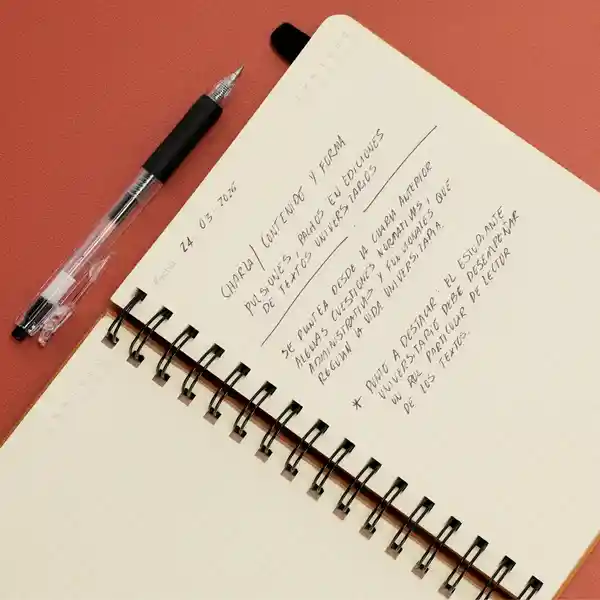 FECHA 24 03 2026
CHARLA / CONTENIDO Y FORMA
PULSIONES, PAGADOS EN EDICIONES
DE TEXTOS UNIVERSITARIOS.
SE PUNTEA DESDE LA CHARLA ANTERIOR
ALGUNAS CUESTIONES NORMATIVAS,
ADMINISTRATIVAS Y FUNCIONALES QUE
REGULAN LA VIDA UNIVERSITARIA.
* PUNTO A DESTACAR: EL ESTUDIANTE
UNIVERSITARIO DEBE DESEMPEÑAR
UN ROL PARTICULAR DE LECTOR
DE LOS TEXTOS.